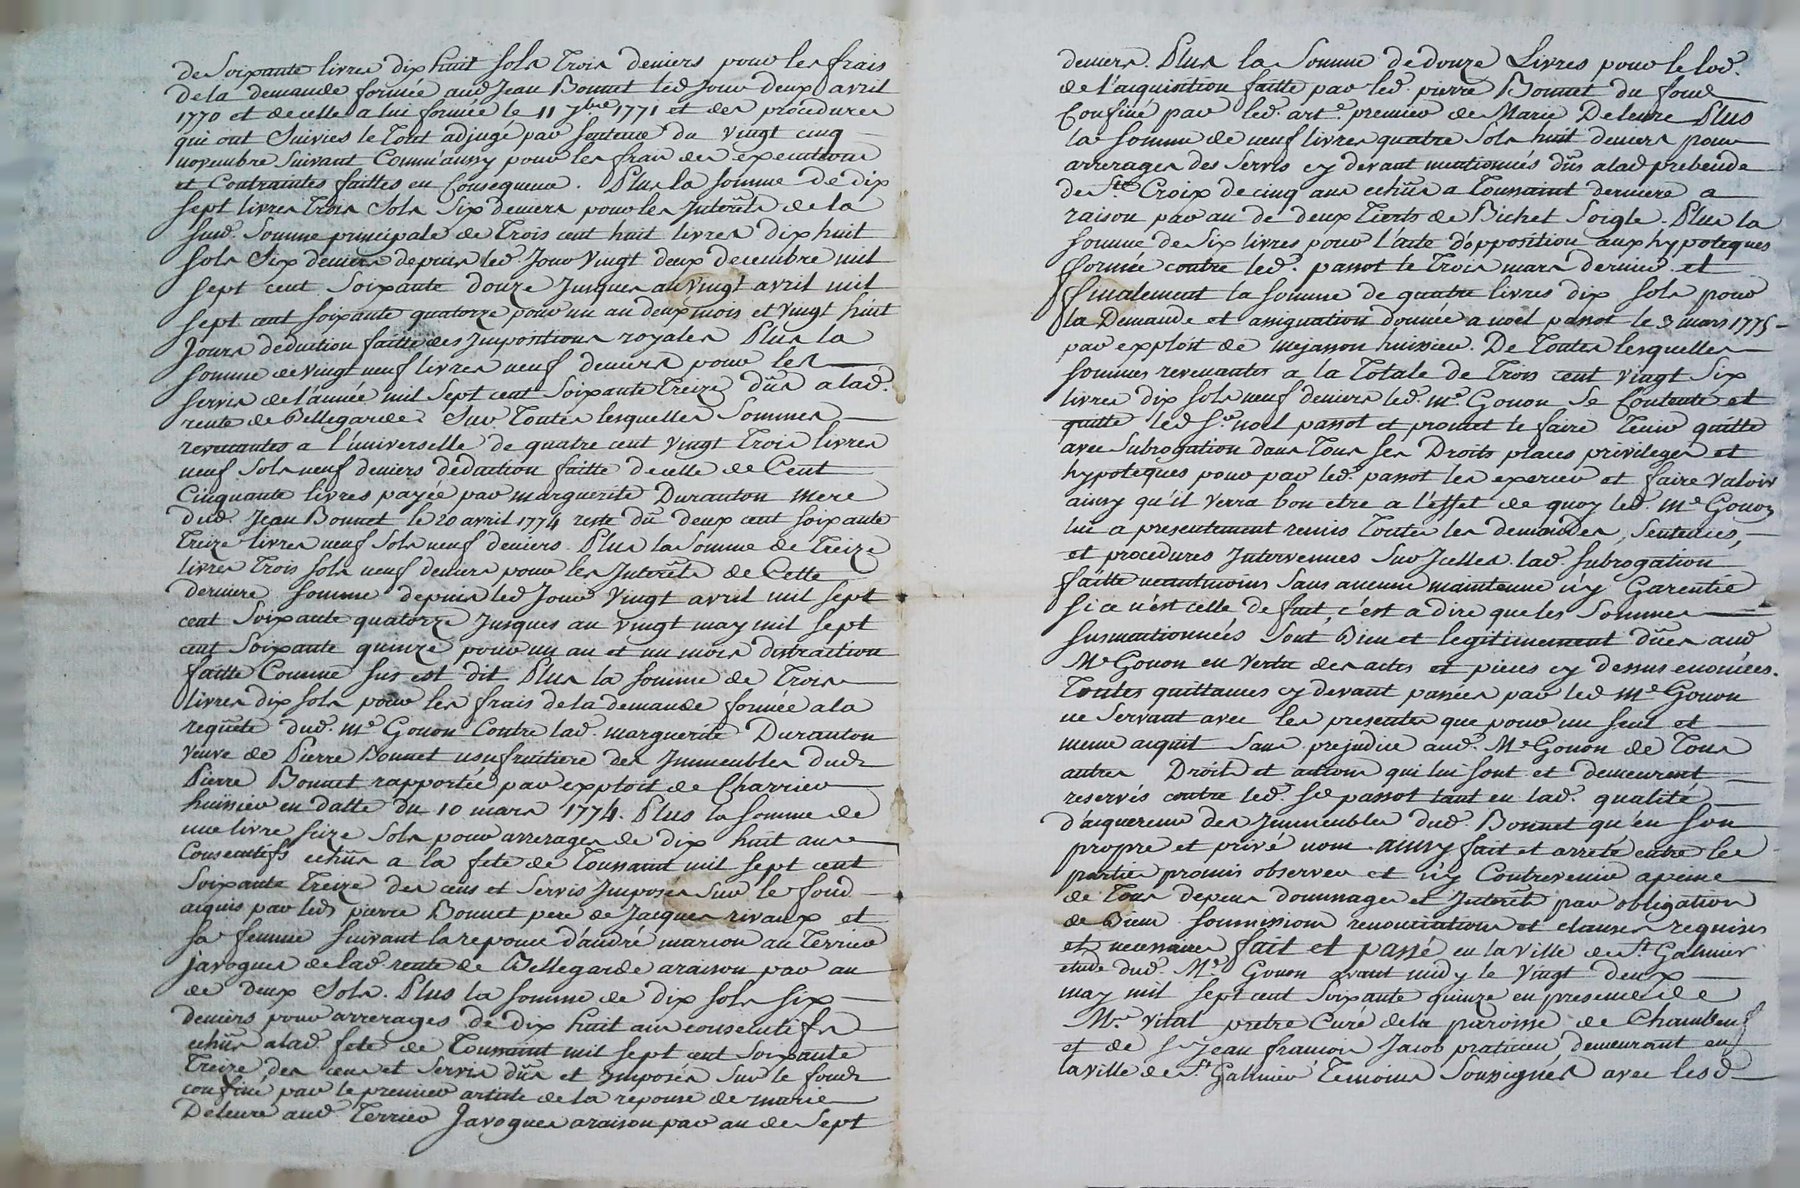 de Soixante livres dix huit sols Trois deniers pour les frais
de la demande formée aud Jean Bonnet led Jour deux avril
1770 et de celle a lui formée le 11 7bre 1771 et des procedures
qui ont Suivies le Tout adjugé par Sentence du vingt cinq
novembre Suivant Comm'aussy pour les frais des executions
et Contraintes faittes en Consequence. Plus la somme de dix
sept livres trois Sols Six deniers pour les Interêts de la
susd. Somme principale de Trois cent huit livres dix huit
sols Six deniers depuis led. Jour vingt deux decembre mil
sept cent Soixante douze Jusques au vingt avril mil
sept cent soixante quatorze pour un an deux mois et vingt huit
Jours deduction faitte des Impositions royales Plus la
somme de vingt neuf livres neuf deniers pour les
servis de l'année mil Sept cent Soixante Treize dûs a lad.
rente de Bellegarde. Sur Toutes lesquelles Sommes
revenantes a l'universelle de quatre cent vingt Trois livres
neuf Sols neuf deniers deduction faitte de celle de Cent
Cinquante livres payée par marguerite Duranton mere
dud. Jean Bonnet le 20 avril 1774 reste dû deux cent soixante
Treize livres neuf Sols neuf deniers. Plus la Somme de Treize
livres Trois sols neuf deniers pour les Interêts de Cette
derniere somme depuis led Jour vingt avril mil sept
cent Soixante quatorze Jusques au vingt may mil sept
cent Soixante quinze pour un an et un mois distraction
faitte Comme sus est dit. Plus la somme de Trois
livres dix sols pour les frais de la demande formée a la
requête dud. Me Gonon Contre lad. marguerite Duranton
veuve de Pierre Bonnet usufruitiere des Immeubles dud
Pierre Bonnet rapportée par exploit de Charrier
huissier en datte du 10 mars 1774. Plus la somme de
une livre seize Sols pour arrerages de dix huit ans
Consecutifs echûs a la fete de Toussaint mil sept cent
soixante Treize des cens et Servis Imposés Sur le fond
aiquis par led pierre Bonnet pere de Jacques rivaux et
sa femme suivant la reponce d'andré marcon au Terrier
javogues de lad rente de Bellegarde a raison par an
de deux Sols. Plus la somme de dix sols six
deniers pour arrerages de dix huit ans consecutifs
echûs a lad. fete de Toussaint mil sept cent soixante
Treize des cens et Servis dûs et Imposés Sur le fond
confiné par le premier article de la reponse de marie
Deleure aud. Terrier Javogues a raison par an de Sept
deniers. Plus la Somme de douze Livres pour le lod.
de l'aiquisition faitte par led. pierre Bonnet du fond
Confiné par led. art. premier de Marie Deleure Plus
la somme de neuf livres quatre Sols huit deniers pour
arrerages des Servis cy devant mentionnés dûs a lad prebende
de Ste Croix de cinq ans echûs a Toussaint derniere a
raison par an de deux Tierts de Bichet Soigle. Plus la
somme de Six livres pour l'acte d'opposition aux hypoteques
formée contre led. passot le Trois mars dernier. et
finalement la somme de quatre livres dix sols pour
la Demande et assignation donnée a noel passot le 3 mars 1775
par exploit de mejasson huissier. De Toutes lesquelles
sommes revenantes a la Totale de Trois cent vingt Six
livres dix sols neuf deniers led. Me. Gonon Se Contente et
quitte led Sr. noel passot et promet le faire Tenir quitte
avec Subrogation dans Tous ses Droits places privileges et
hypoteques pour par led. passot les exercer et faire valoir
ainsy qu'il verra bon etre a l'effet de quoy led. Me Gonon
lui a presentement remis Toutes les demandes, Sentences,
et procedures Intervenues Sur Icelles. lad. subrogation
faitte neantmoins Sans aucune maintenue n'y Garentie
si ce n'est celle de fait, c'est a dire que les Sommes
susmentionnées Sont Bien et legitimement dûes aud
Me Gonon en vertu des actes et pieces cy dessus enoncées.
Toutes quittances cy devant passées par led Me Gonon
ne Servant avec les presentes que pour un seul et
meme aiquit Sans prejudice aud. Me Gonon de Tous
autres Droits et actions qui lui sont et demeurent
reservés contre led. Sr passot tant en lad. qualité
d'aiquereur des Immeubles dud. Bonnet qu'en son
propre et privé nom. ainsy fait et arreté entre les
parties promis observer et n'y Contrevenir a peine
de Tous depens dommages et Interêts par obligation
de Biens soumissions renonciations et clauses requises
et necessaires fait et passé en la ville de St Galmier
etude dud. Me. Gonon avant midy le vingt deux
may mil sept cent Soixante quinze en presence de
Mre. Vital pretre Curé de la paroisse de Chambeuf
et de Sr Jean francois Jacob praticien demeurant en
la ville de St Galmier Temoins Soussignés avec lesd